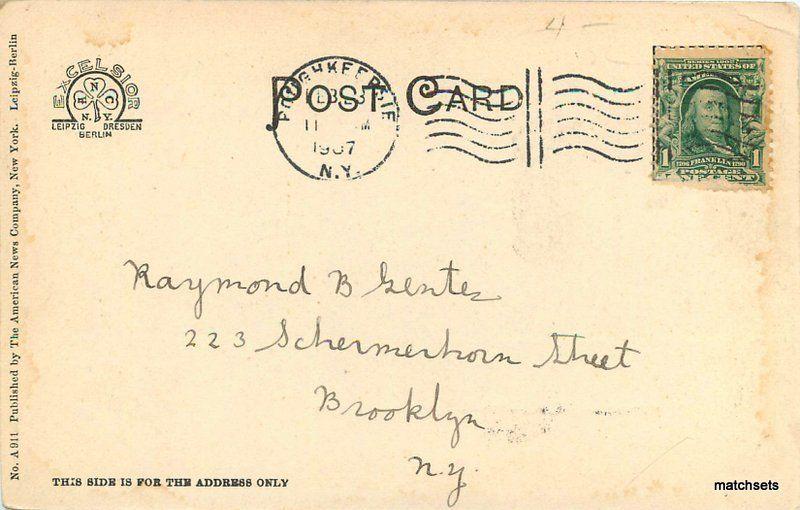 No. A 911 Published by The American News Company, New York. Leipzig-Berlin
EXCELSIOR
A N C
N.Y.
LEIPZIG DRESDEN
BERLIN
POST CARD
POUGHKEEPSIE
FEB
11 M
1907
N.Y.
4 -
SERIES 1902
UNITED STATES OF AMERICA
1706 FRANKLIN 1790
1 POSTAGE 1
ONE CENT
Raymond B
223 Schermerhorn Street
Brooklyn
N.Y.
THIS SIDE IS FOR THE ADDRESS ONLY
matchsets